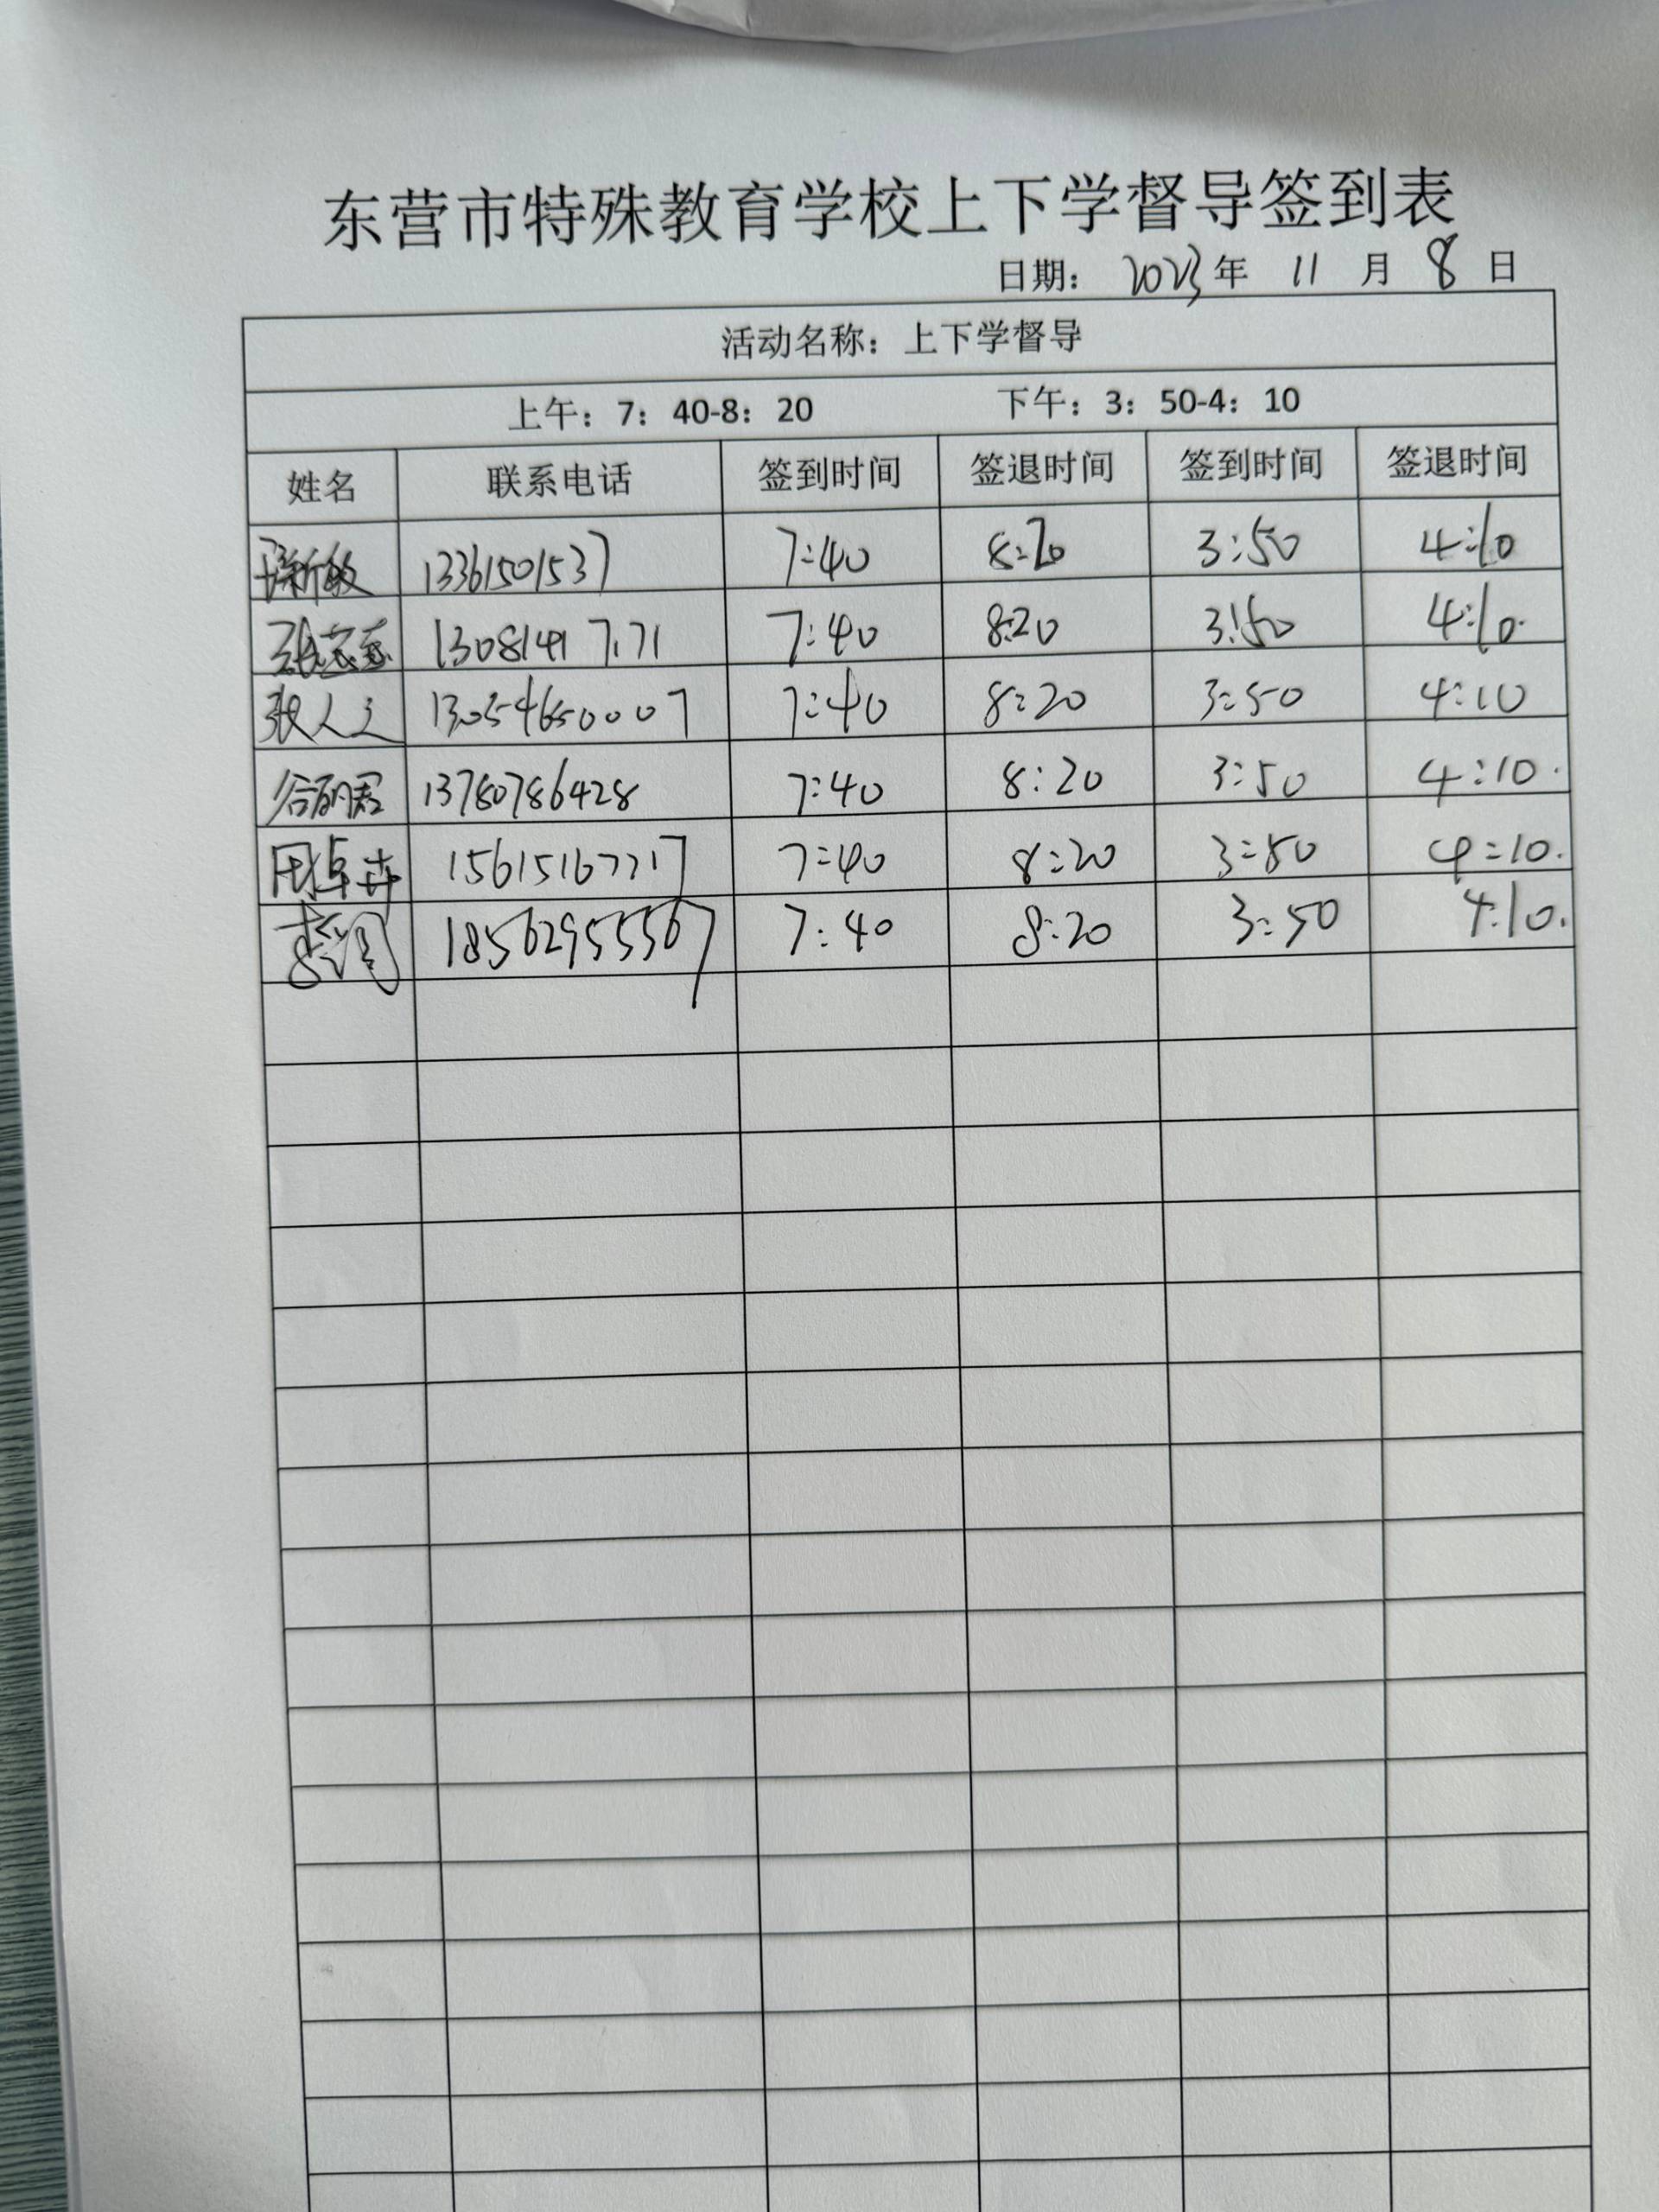 东营市特殊教育学校上下学督导签到表
日期： 2023 年 11 月 8 日
活动名称：上下学督导
上午：7：40-8：20 下午：3：50-4：10
姓名 联系电话 签到时间 签退时间 签到时间 签退时间
13361501537 7:40 8:20 3:50 4:10
7:40 8:20 3:50 4:10.
张人之 13054650007 7:40 8:20 3:50 4:10
13780786428 7:40 8:20 3:50 4:10.
7:40 8:20 3:50 4:10.
18562955567 7:40 8:20 3:50 4:10.